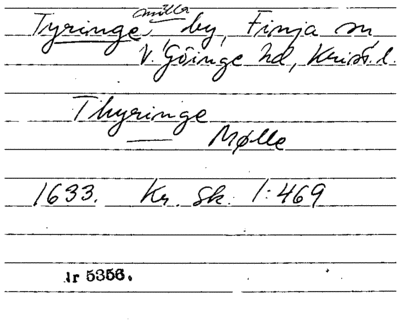 mölla
Tyringe, by, Finja sn,
V. Göinge hd, Krist. l.
Thyringe
Mølle
1633. Kr. Sk. 1:469
Nr 5356.